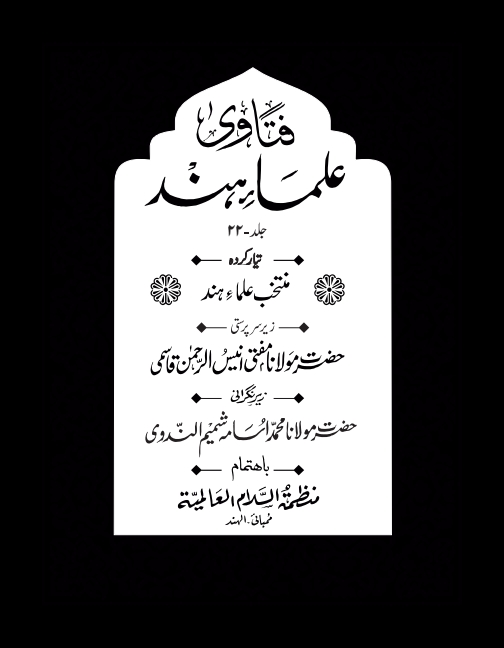 فتاویٰ
علماءِ ہند
جلد-۲۲
تیار کردہ
منتخب علماءِ ہند
زیر سرپرستی
حضرت مولانا مفتی انیس الرحمٰن قاسمی
زیر نگرانی
حضرت مولانا محمد اسامہ شمیم الندوی
باهتمام
منظمة السلام العالمیة
ممبائی۔الهند